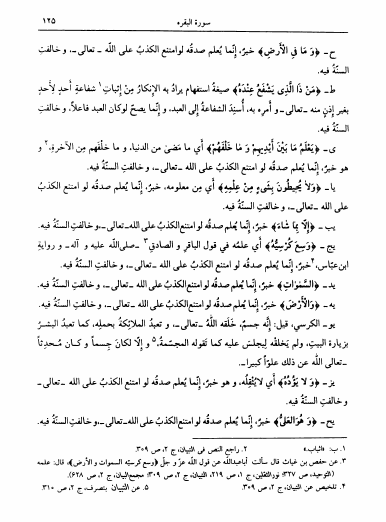 سورة البقره ١٢٥
ح - ﴿وَ مَا فِي الْأَرْضِ﴾ خبرٌ، إنَّما يُعلم صدقُه لو امتنع الكذبُ على اللّه - تعالى -، و خالفتِ
السنّةُ فيه.
ط - ﴿مَنْ ذَا الَّذِي يَشْفَعُ عِنْدَهُ﴾ صيغةُ استفهامٍ يرادُ به الإنكارُ مِنْ إثباتِ١ شفاعةِ أحدٍ لأحدٍ
بغيرِ إذنٍ منه - تعالى - و أمرِه به، أُسنِدَ الشفاعةُ إلى العبد، و إنّما يصحّ لو كان العبد فاعلاً، و خالفتِ
السنّةُ فيه.
ى - ﴿يَعْلَمُ مَا بَيْنَ أَيْدِيهِمْ وَ مَا خَلْفَهُمْ﴾ أي ما مَضىٰ من الدنيا، و ما خلْفَهم مِن الآخرةِ،٢ و
هو خبرٌ، إنَّما يُعلم صدقُه لو امتنع الكذبُ على الله - تعالى -، و خالفتِ السنّةُ فيه.
يا - ﴿وَلاَ يُحيطُونَ بِشَيْءٍ مِنْ عِلْمِهِ﴾ أي مِن معلومِه، خبرٌ، إنَّما يُعلم صدقُه لو امتنع الكذبُ
على الله - تعالى -، و خالفتِ السنّةُ فيه.
يب - ﴿إِلّا بِمَا شَاءَ﴾ خبرٌ، إنَّما يُعلم صدقُه لو امتنع الكذبُ على الله - تعالى -، و خالفتِ السنّةُ فيه.
يج - ﴿وَسِعَ كُرْسِيُّهُ﴾ أي علمُه في قول الباقرِ و الصادقِ٣ - صلى‌الله عليه و آله - و روايةِ
ابن عبّاس،٤ خبرٌ، إنَّما يُعلم صدقُه لو امتنع الكذبُ على الله - تعالى -، و خالفتِ السنّةُ فيه.
يد - ﴿السَّمٰوَاتِ﴾ خبرٌ، إنَّما يُعلم صدقُه لو امتنع الكذبُ على الله - تعالى -، و خالفتِ السنّةُ فيه.
يه - ﴿وَالْأَرْضَ﴾ خبرٌ، إنَّما يُعلم صدقُه لو امتنع الكذبُ على الله - تعالى -، و خالفتِ السنّةُ فيه.
يو - الكرسي، قيل: إنَّه جسمٌ، خَلَقه اللّهُ - تعالى -، و تعبدُ الملائكةُ بحملِه، كما تعبدُ البشرُ
بزيارةِ البيتِ، ولم يَخلقْه ليجلسَ عليه كما تَقوله المجسّمةُ،٥ و إلّا لكانَ جِسماً و كان مُحدَثاً
- تعالى الله عن ذلك علوّاً كبيراً -.
يز - ﴿وَ لاَ يَؤُدُهُ﴾ أي لا يُثقِلُه، و هو خبرٌ، إنَّما يُعلم صدقُه لو امتنع الكذبُ على الله - تعالى -
و خالفتِ السنّةُ فيه.
يح - ﴿وَ هُوَ الْعَلِيُّ﴾ خبرٌ، إنَّما يُعلم صدقُه لو امتنع الكذبُ على الله - تعالى -، و خالفتِ السنّةُ فيه.
١. ب: «اثباب». ٢. راجع النص فى التبيان، ج ٢، ص ٣٠٩.
٣. عن حفص بن غياث قال سألت أباعبدالله عن قول الله عزّ و جلّ ﴿وسع كرسيّه السموات و الأرض﴾، قال: علمه
(التوحيد، ص ٣٢٧؛ نورالثقلين، ج ١، ص ٢١٩، التبيان، ج ٢، ص ٣٠٩؛ مجمع‌البيان، ج ٢، ص ٦٢٨).
٤. تلخيص عن التبيان، ج ٢، ص ٣٠٩. ٥. عن التبيان بتصرف، ج ٢، ص ٣١٠.